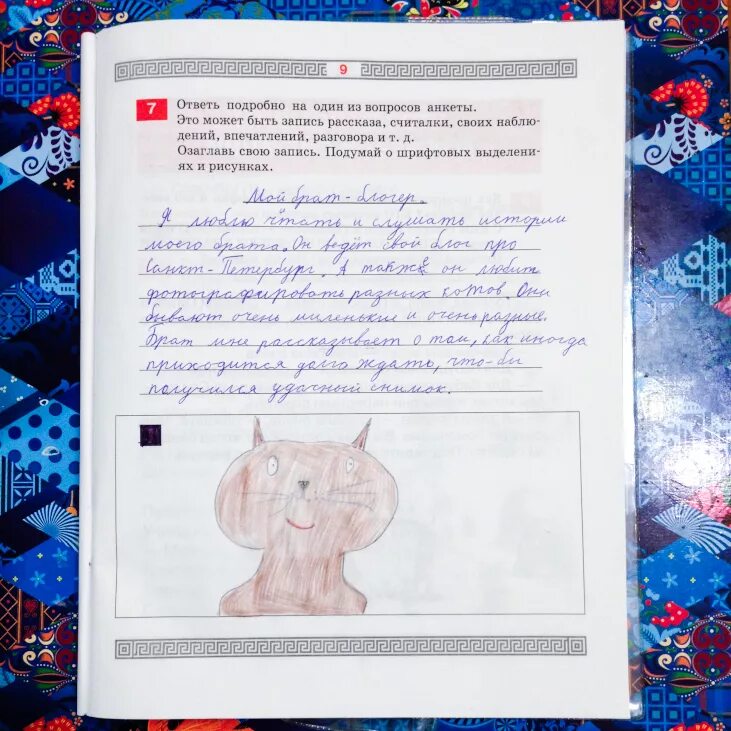 9
7 Ответь подробно на один из вопросов анкеты.
Это может быть запись рассказа, считалки, своих наблю-
дений, впечатлений, разговора и т. д.
Озаглавь свою запись. Подумай о шрифтовых выделени-
ях и рисунках.
Мой брат-блогер.
Я люблю читать и слушать истории
моего брата. Он ведёт свой блог про
Санкт-Петербург. А также он любит
фотографировать разных котов. Они
бывают очень миленькие и очень разные.
Брат мне рассказывает о том, как иногда
приходится долго ждать, что-бы
получился удачный снимок.